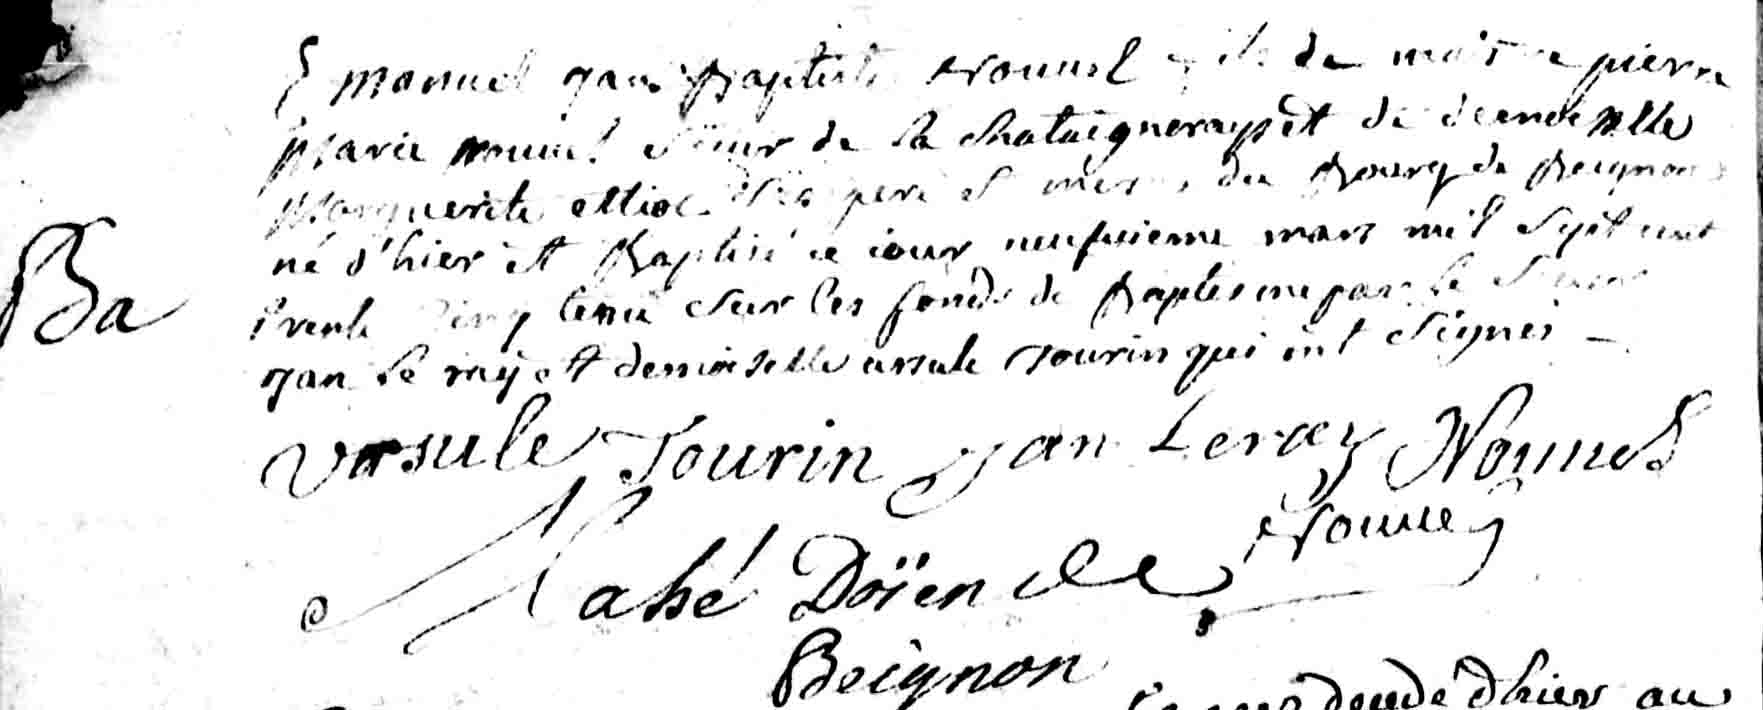 Emanuel jan Baptiste Nouuel fils de maistre pierre
Marie nouuel sieur de la Chataigneraye et de demoiselle
Marguerite ses pere et mere du Bourg de Beignon
né d'hier et Baptisé ce iour neufuieme mars mil sept cent
trente cinq tenu sur les fonds de Baptesme par le sieur
Ba
jan le ray et demoiselle ursule tourin qui ont signés
Ursule Tourin jan Leray Nouuel
Nouuel
Mahé Doïen de
Beignon
d'hier au